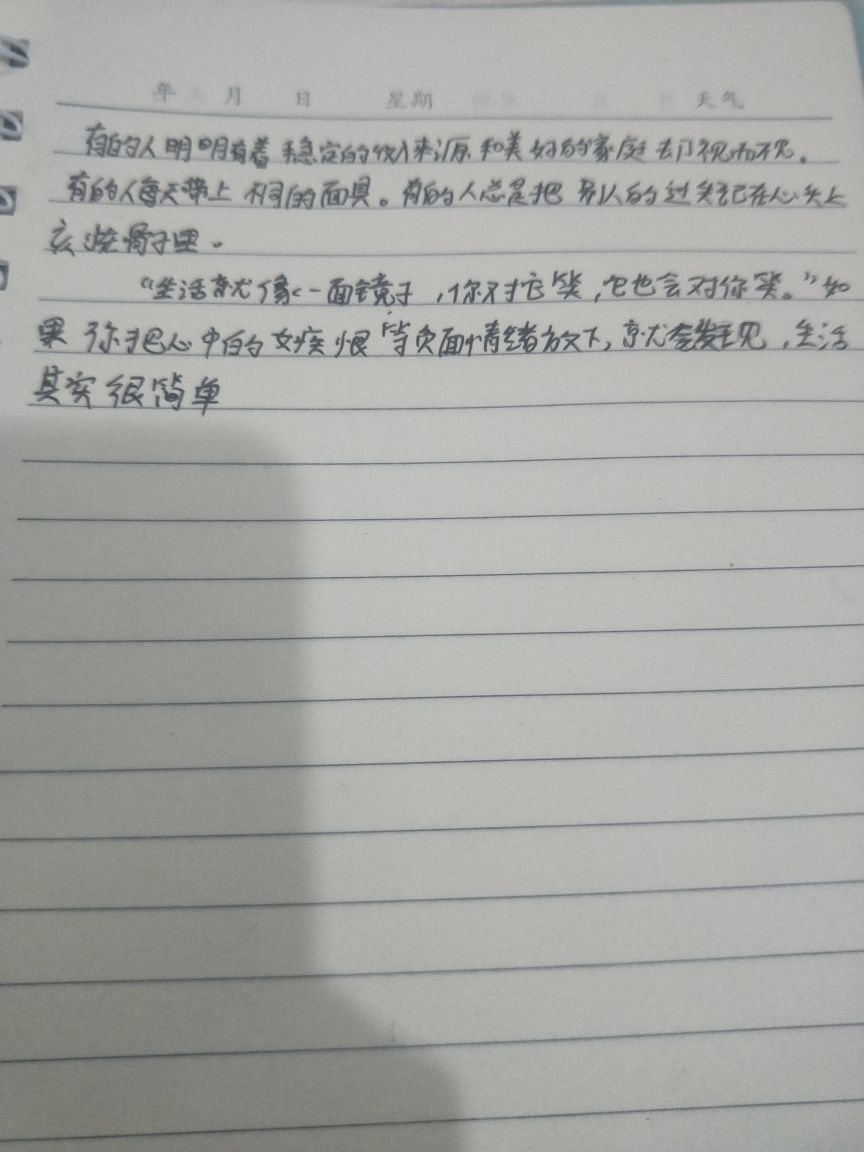 年 月 日 星期 天气
有的人明明有着稳定的收入来源和美好的家庭却视而不见。
有的人每天带上不同的面具。有的人总是把别人的过失记在心头上
骨子里。
“生活就像一面镜子，你对它笑，它也会对你笑。”如
果你把心中的妒疾恨等负面情绪放下，就会发现，生活
其实很简单